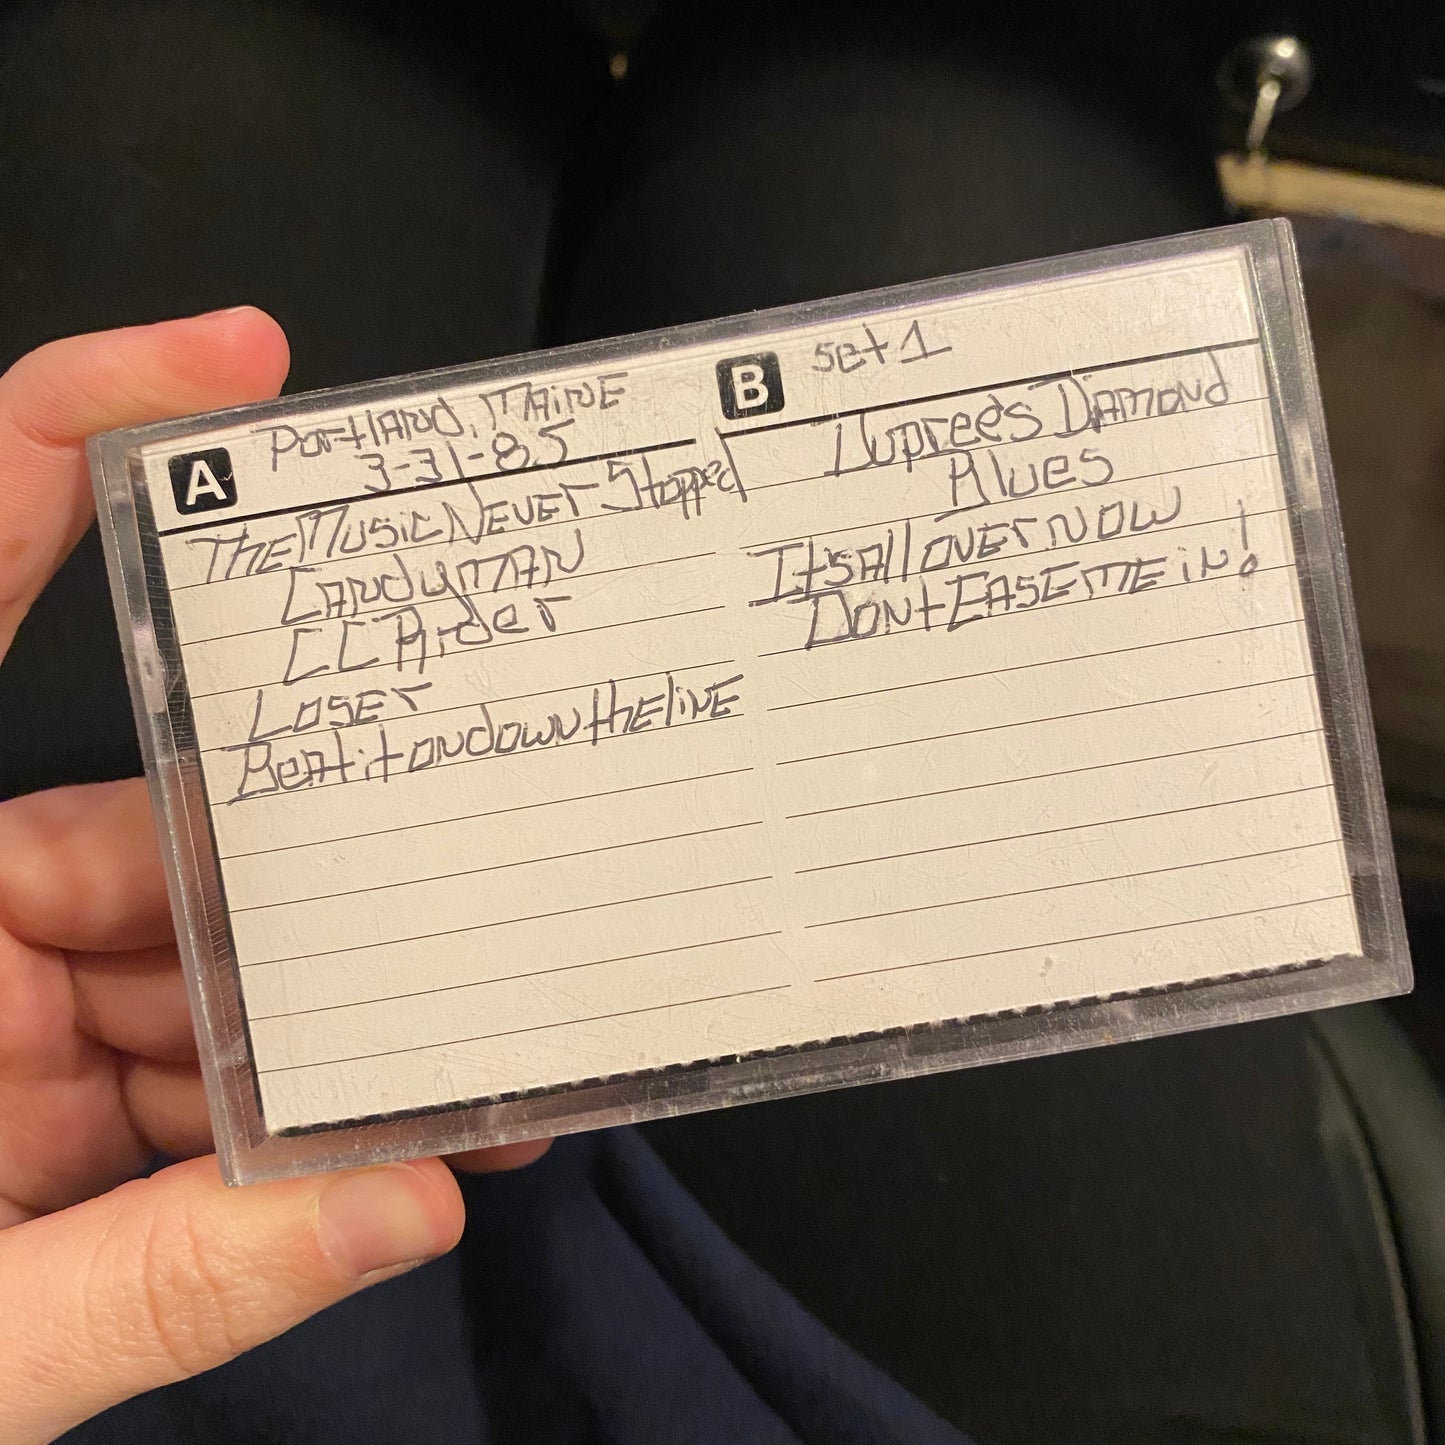 A
Portland, MAiNE
3-31-85
The Music Never Stopped
CANdyMAN
CC Rider
Loser
Beat it on down the line
B
set 1
Dupree's Diamond
Blues
Its All over now
Dont EASE ME in!